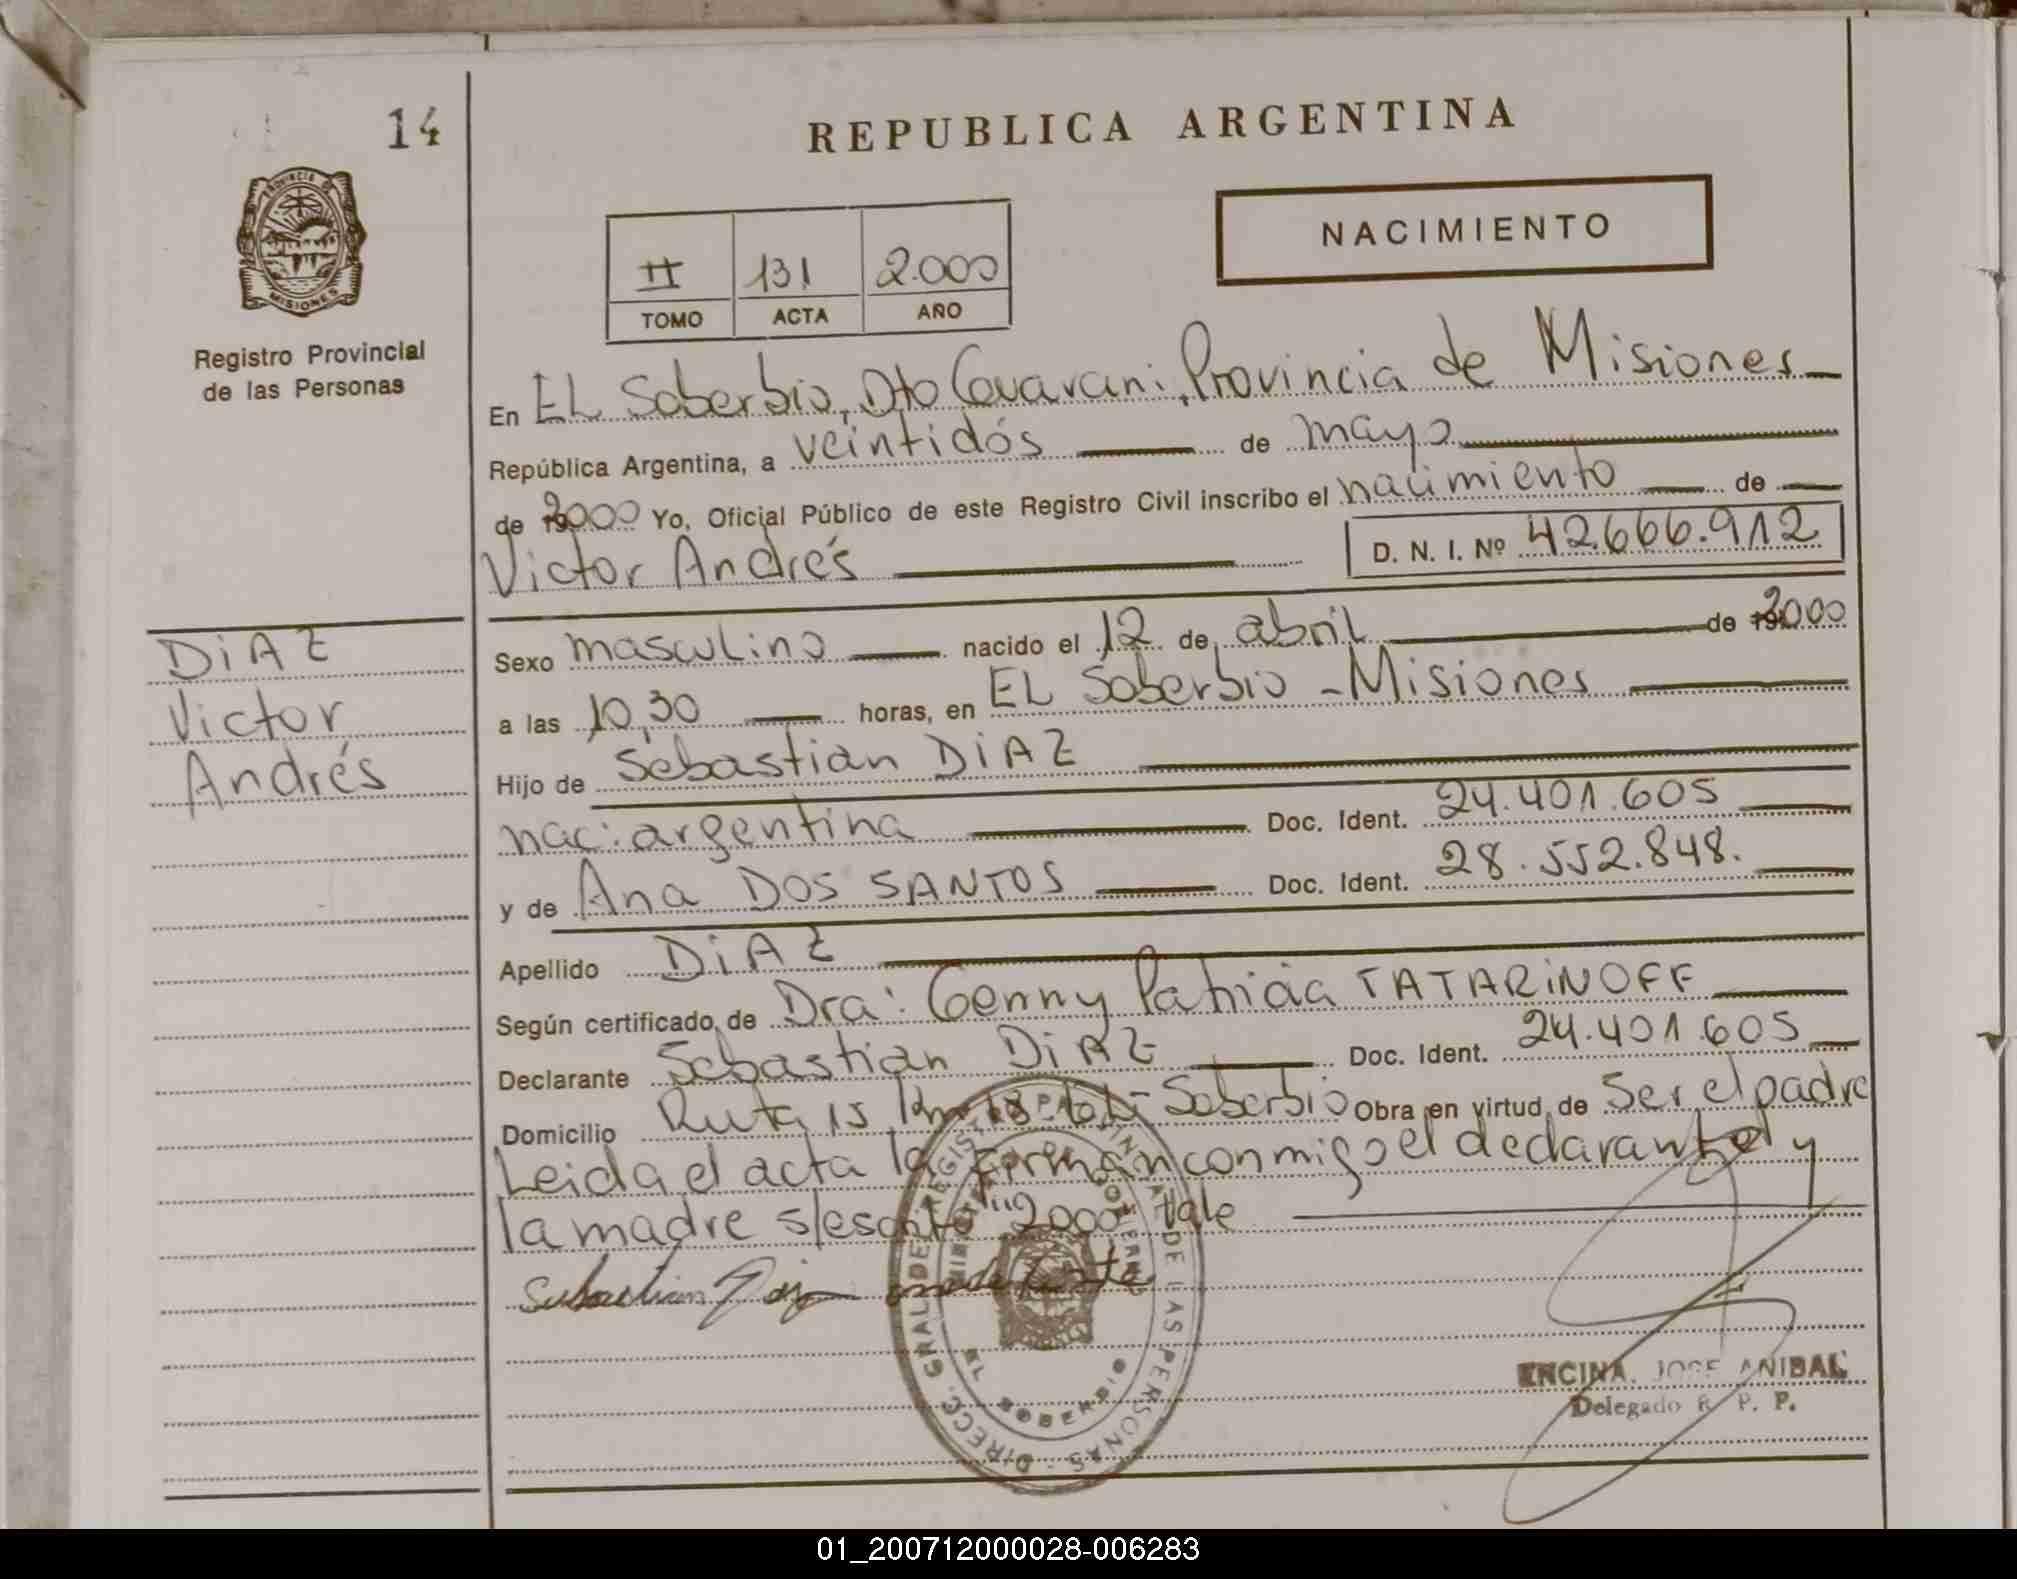 14
REPUBLICA ARGENTINA
PROVINCIA DE
MISIONES
NACIMIENTO
II 131 2.000
TOMO ACTA AÑO
Registro Provincial
de las Personas
En EL Soberbio, Dto Guarani, Provincia de Misiones
República Argentina, a veintidós de mayo
de 2000 Yo, Oficial Público de este Registro Civil inscribo el nacimiento de
Victor Andrés D. N. I. Nº 42.666.912
DiAZ
Victor
Andrés
Sexo masculino nacido el 12 de abril de 2000
a las 10,30 horas, en EL Soberbio - Misiones
Hijo de Sebastián DiAZ
nac: argentina Doc. Ident. 24.401.605
y de Ana DOS SANTOS Doc. Ident. 28.552.848.
Apellido DiAZ
Según certificado de Dra: Genny Patricia TATARiNOFF
Declarante Sebastián DiAZ Doc. Ident. 24.401.605
Domicilio Ruta 15 Km 18 - Soberbio Obra en virtud de Ser el padre
Leida el acta la firman conmigo el declarante y
la madre s/escrito "2000" Vale
Sebastian Diaz
DIRECC. GRAL DE REGISTRO PROVINCIAL DE LAS PERSONAS
EL SOBERBIO
ENCINA, JOSE ANIBAL
Delegado R. P. P.
01_200712000028-006283